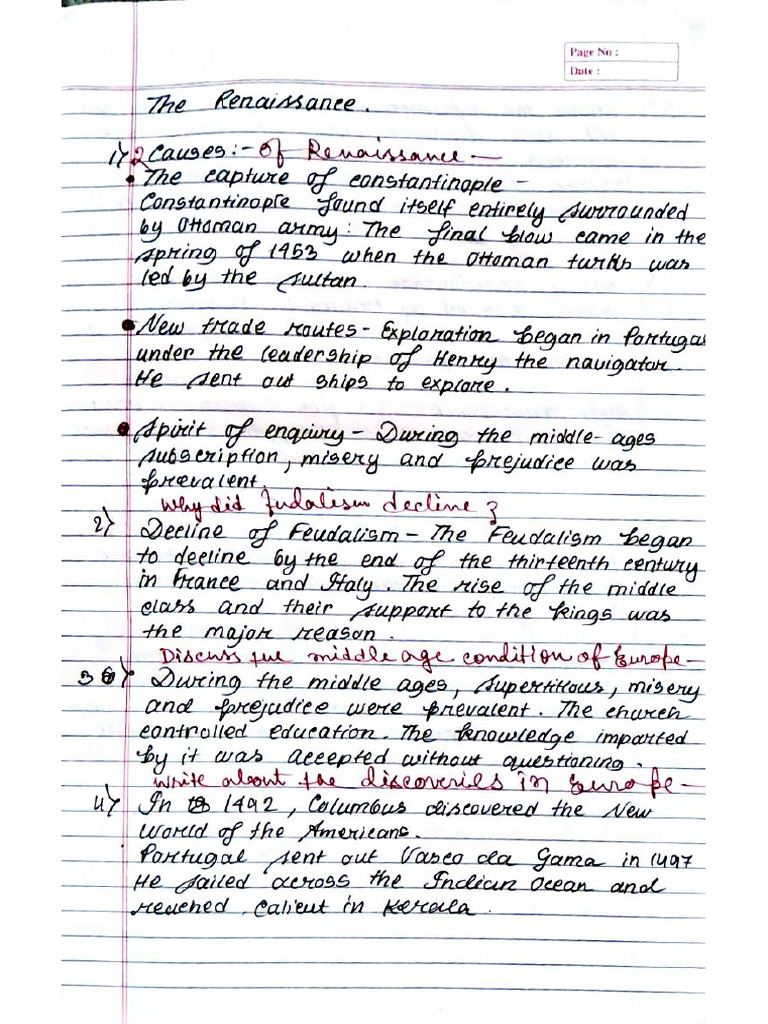 Page No :
Date :
The Renaissance.
1) 2 Causes:- of Renaissance —
• The capture of constantinople -
Constantinople found itself entirely surrounded
by Ottoman army: The final blow came in the
spring of 1453 when the Ottoman turks was
led by the sultan.
• New trade routes - Exploration began in Portugal
under the leadership of Henry the navigator.
He sent out ships to explore.
• Spirit of enquiry - During the middle-ages
subscription, misery and prejudice was
prevalent.
Why did fudalism decline ?
2) Decline of Feudalism - The Feudalism began
to decline by the end of the thirteenth century
in France and Italy. The rise of the middle
class and their support to the kings was
the major reason.
Discuss the middle age condition of Europe -
3) During the middle ages, supertitious, misery
and prejudice were prevalent. The church
controlled education. The knowledge imparted
by it was accepted without questioning.
Write about the discoveries in Europe -
4) In 1492, Columbus discovered the New
World of the Americans.
Portugal sent out Vasco da Gama in 1497
He sailed across the Indian Ocean and
reached Calicut in Kerala.